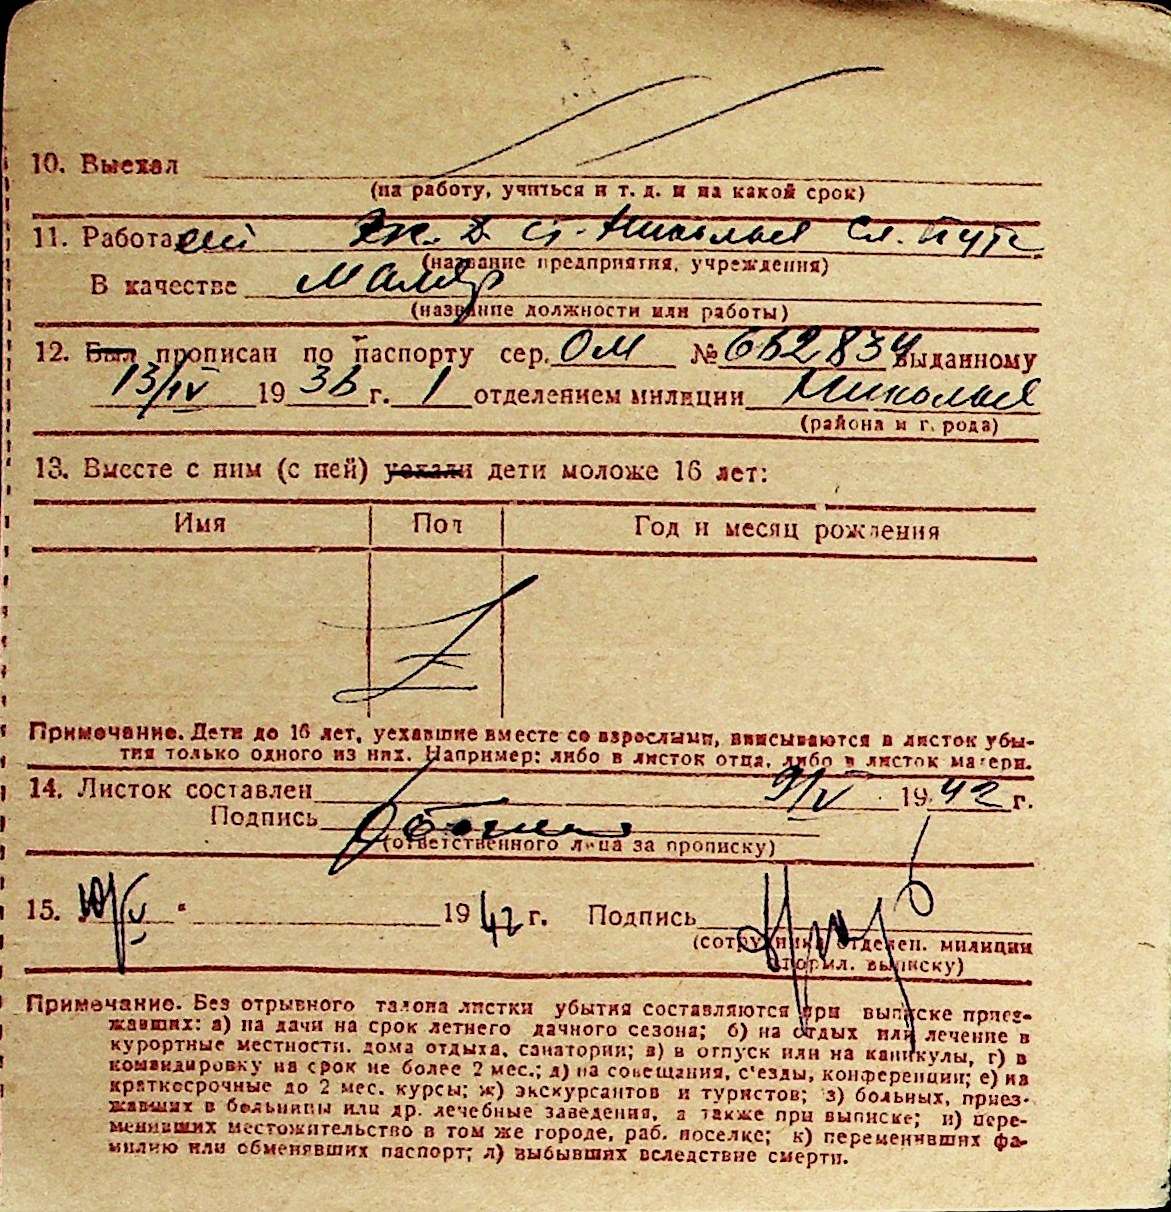 10. Выехал
(на работу, учиться и т. д. и на какой срок)
11. Работа ж. д ст. Никольск Сл. пути
(название предприятия, учреждения)
В качестве Маляр
(название должности или работы)
12. Был прописан по паспорту сер. ОМ № выданному
13/IV 19 36 г. 1 отделением милиции
(района и города)
13. Вместе с ним (с ней) уехали дети моложе 16 лет:
Имя Пол Год и месяц рождения
Примечание. Дети до 16 лет, уехавшие вместе со взрослыми, вписываются в листок убы-
тия только одного из них. Например: либо в листок отца, либо в листок матери.
14. Листок составлен 9/V 19 42 г.
Подпись
(ответственного лица за прописку)
15. 10/V 19 42 г. Подпись
(сотрудника отделен. милиции
оформл. выписку)
Примечание. Без отрывного талона листки убытия составляются при выписке приез-
жавших: а) на дачи на срок летнего дачного сезона; б) на отдых или лечение в
курортные местности, дома отдыха, санатории; в) в отпуск или на каникулы, г) в
командировку на срок не более 2 мес.; д) на совещания, с'езды, конференции; е) на
краткосрочные до 2 мес. курсы; ж) экскурсантов и туристов; з) больных, приез-
жавших в больницы или др. лечебные заведения, а также при выписке; и) пере-
менивших местожительство в том же городе, раб. поселке; к) переменивших фа-
милию или обменявших паспорт; л) выбывших вследствие смерти.